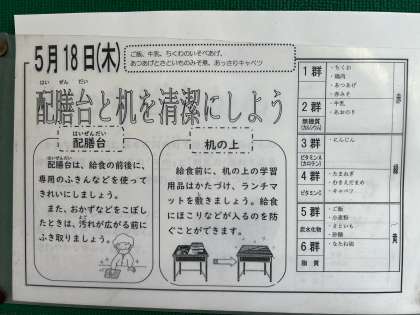 5月18日(木)
ご飯、牛乳、ちくわのいそべあげ、
あつあげとさといものみそ煮、あっさりキャベツ
はいぜんだい
配膳台と机を清潔にしよう
はいぜんだい
配膳台
配膳台は、給食の前後に、
専用のふきんなどを使って
きれいにしましょう。
また、おかずなどをこぼし
たときは、汚れが広がる前に
ふき取りましょう。
机の上
給食前に、机の上の学習
用品はかたづけ、ランチマッ
トを敷きましょう。給食
にほこりなどが入るのを防
ぐことができます。
1群
・ちくわ
・鶏肉
・あつあげ
・赤みそ
2群
無機質
(カルシウム)
・牛乳
・あおのり
赤
3群
ビタミンA
(カロテン)
・にんじん
4群
ビタミンC
・たまねぎ
・むきえだまめ
・キャベツ
緑
5群
炭水化物
・ご飯
・小麦粉
・さといも
・砂糖
6群
脂質
・なたね油
黄